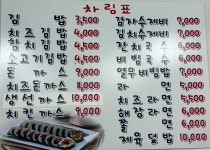 차림표
김밥 3,500
치즈김밥 4,000
참치김밥 4,000
소고기김밥 4,000
돈까스 9,000
치즈돈까스 11,000
생선까스 10,000
감자수제비 7,000
김치수제비 7,000
칼국수 6,000
비빔국수 6,000
열무비빔밥 7,000
라면
치즈라면 5,000
해장라면 6,000
쫄면 6,000
제육덮밥 10,000